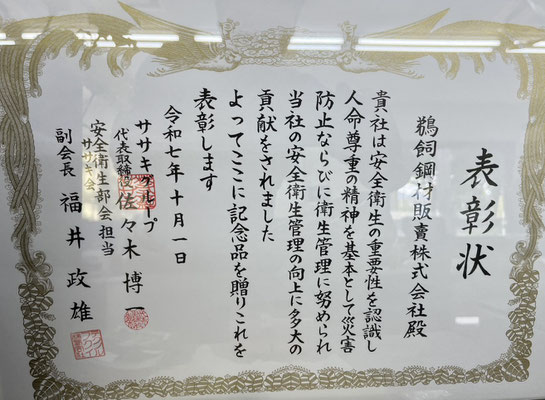 表彰状
鵜飼鋼材販賣株式会社殿
貴社は安全衛生の重要性を認識し
人命尊重の精神を基本として災害
防止ならびに衛生管理に努められ
当社の安全衛生管理の向上に多大の
貢献をされました
よってここに記念品を贈りこれを
表彰します
令和七年十月一日
ササキグループ
代表取締役 佐々木博一
ササキ会
安全衛生部会担当
副会長 福井政雄